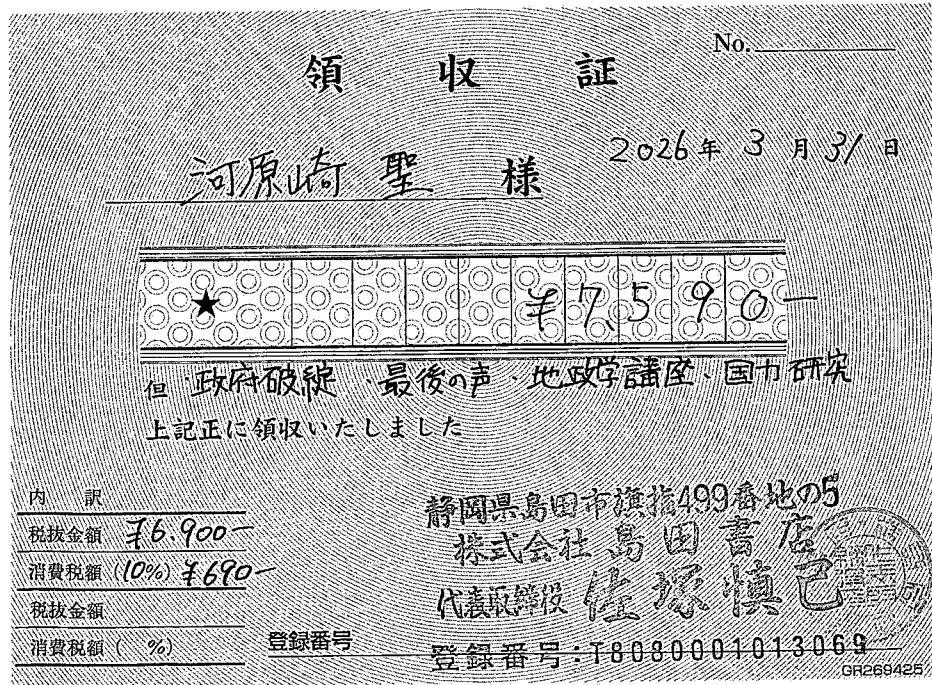 No.
領収証
2026年3月31日
河原崎 聖 様
★ ¥7,590-
但 政府破綻、最後の声、地政学講座、国力研究
上記正に領収いたしました
内訳
税抜金額 ¥6,900-
消費税額(10%) ¥690-
税抜金額
消費税額( %)
静岡県島田市旗指499番地の5
株式会社島田書店
代表取締役 佐塚慎己
登録番号
登録番号:T8080001013069
GR269425